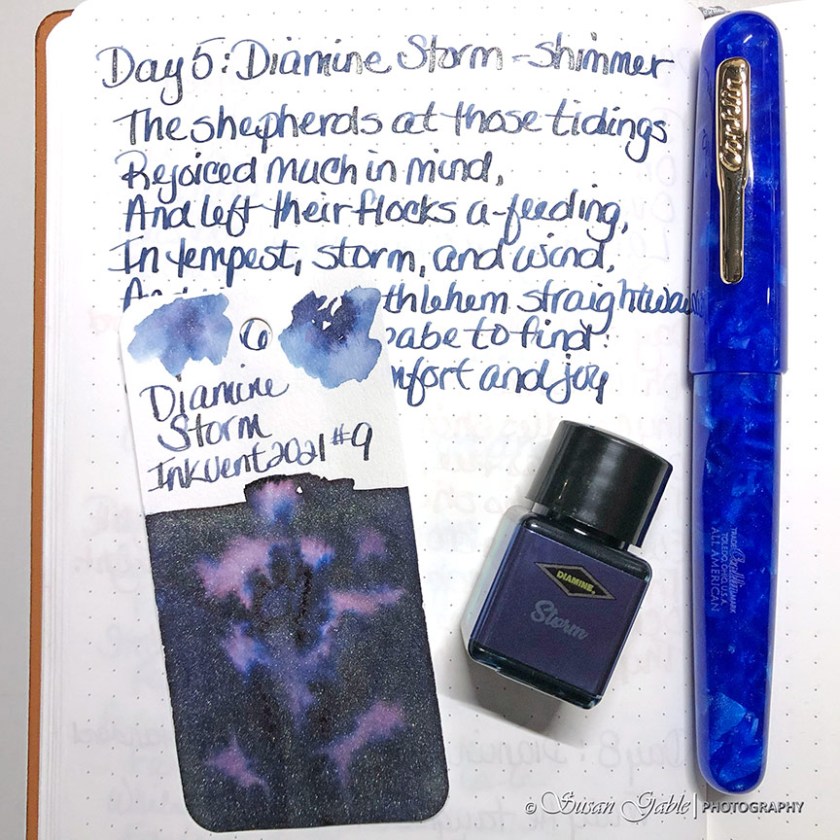 Day 5: Diamine Storm - shimmer
The shepherds at those tidings
Rejoiced much in mind,
And left their flocks a-feeding,
In tempest, storm, and wind,
thlehem straightway
babe to find:
mfort and joy
Diamine
Storm
Inkvent 2021 #9
DIAMINE
Storm
Conklin
TRADE Conklin MARK
TOLEDO, OHIO, U.S.A.
ALL AMERICAN
© Susan Gable | PHOTOGRAPHY